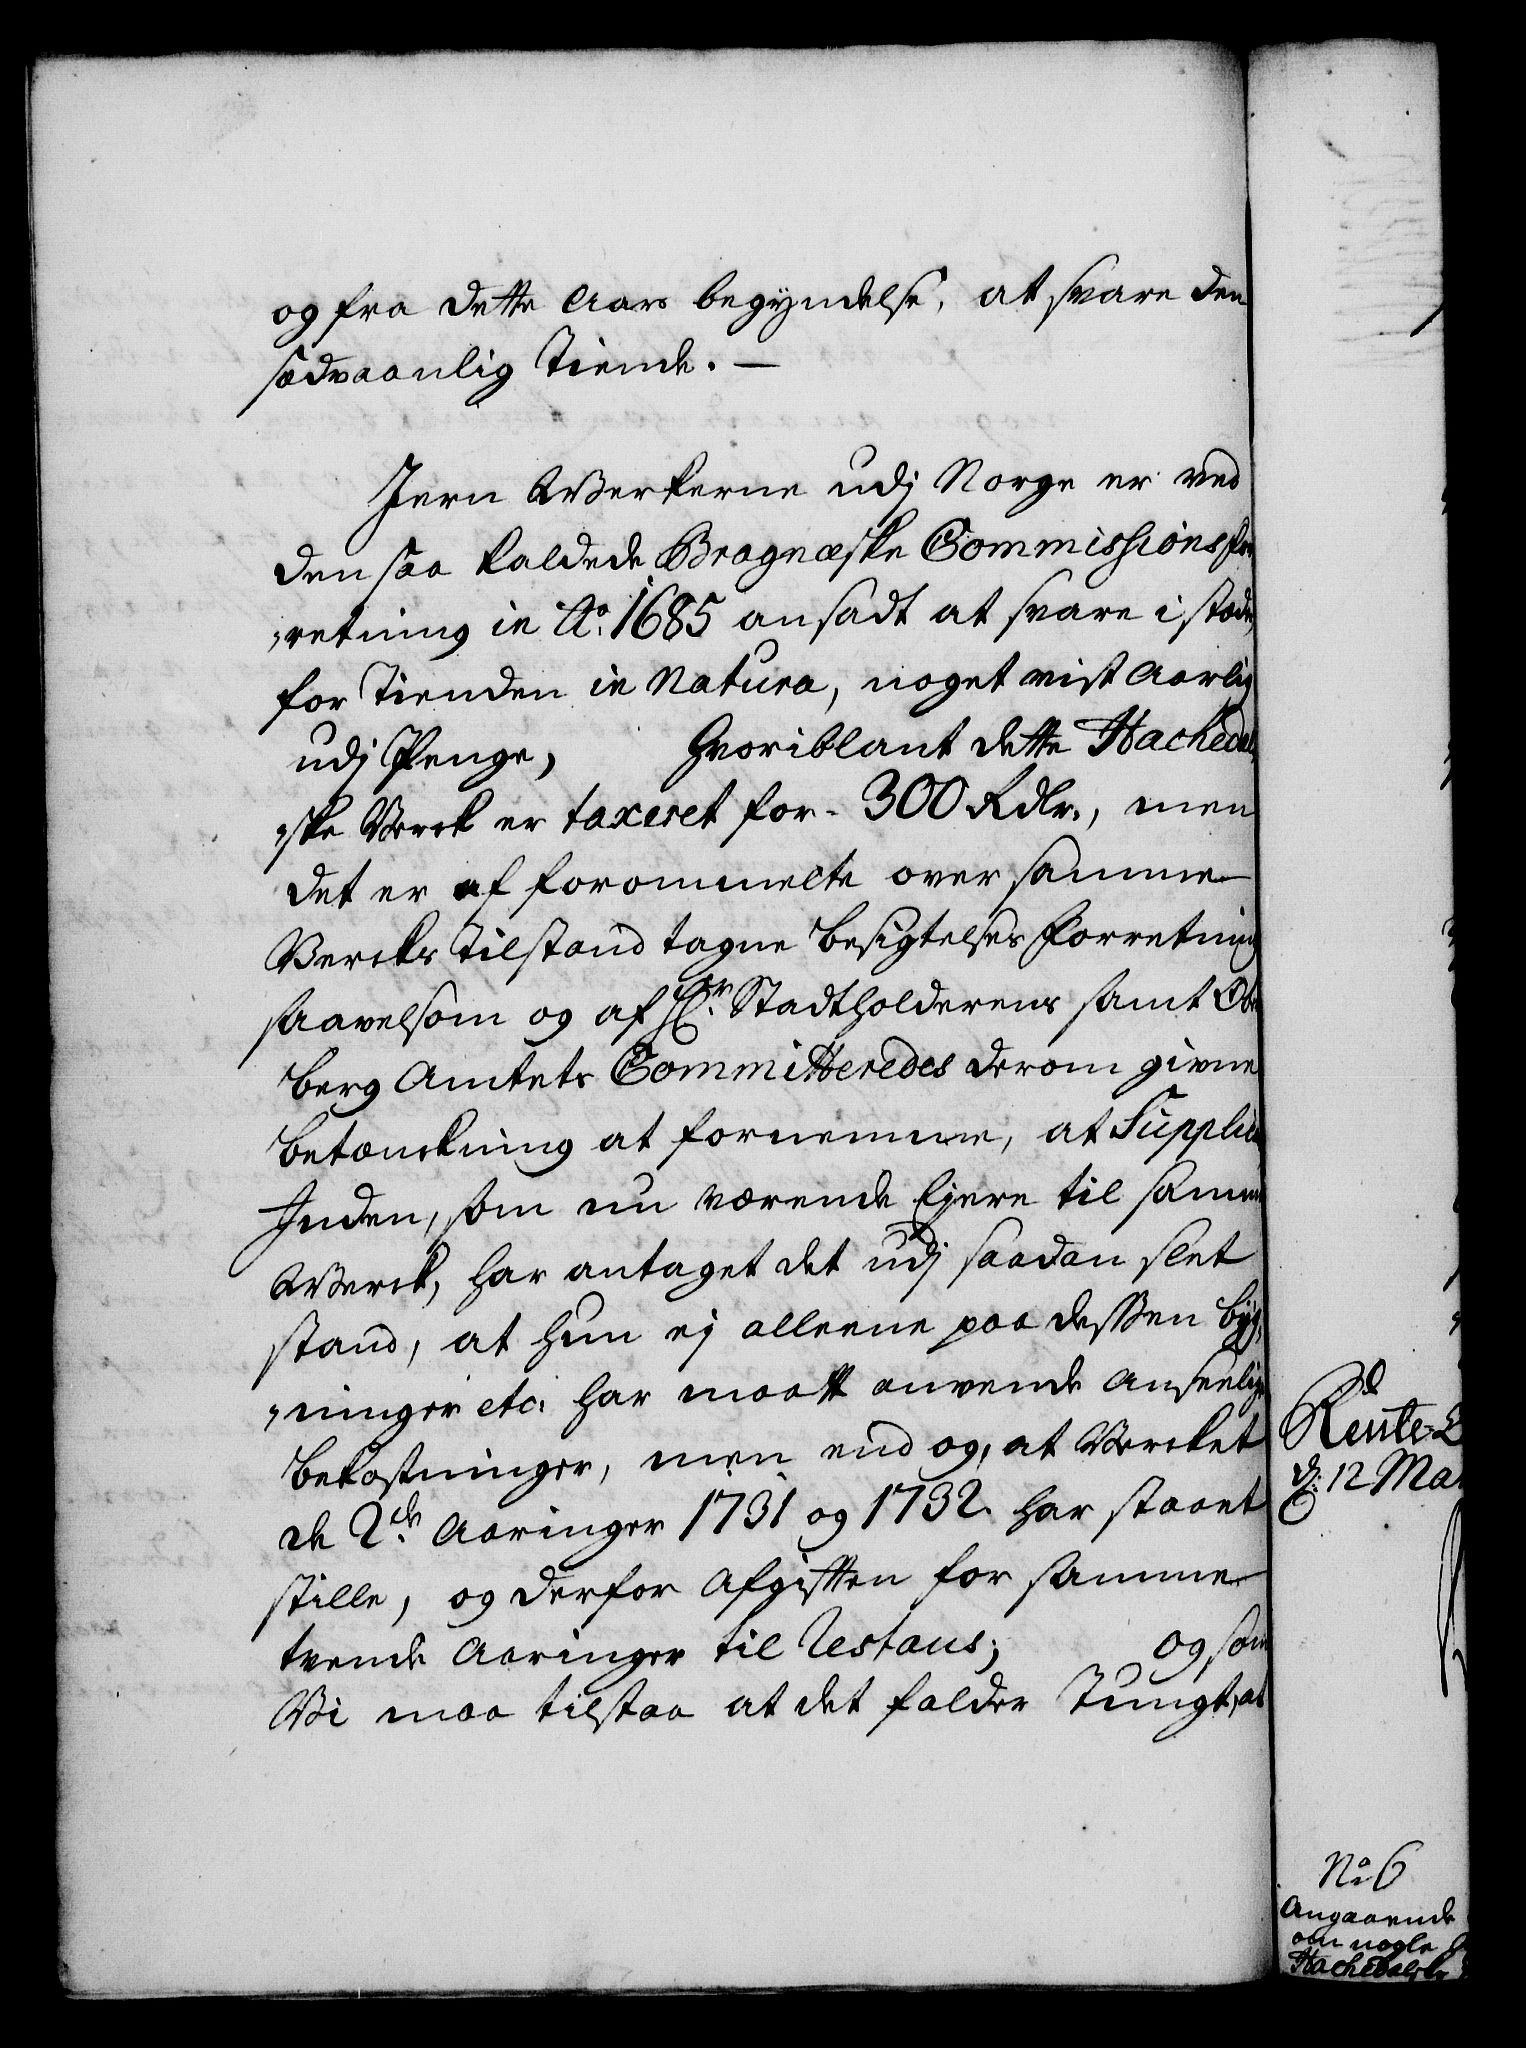 og fra dette Aars begyndelse, at svare den
sædvaanlig Tiende. —
Jern Werkerne udj Norge er ved
den saa kaldede Bragnæske Commissions for
,retning in Ao. 1685 ansadt at svare i stæde,
for Tienden in Natura, noget vist Aarlig
udj Penge, hvoriblant dette Hachedal
,ske Verck er taxeret for - 300 Rdlr., men
det er af forommelte over samme
Vercks Tilstand tagne Besigtelses Forretning
saavelsom og af Hr. Stadtholderens samt Ober
berg Amtets Committeredes derom givne
betænckning at fornemme, at Supplican
Inden, som nu værende Ejere til samme
Werck, har antaget det udj saadan slet
stand, at hun ej alleene paa dessen byg,
,ninger etc. har maatt anvende Anseelige
bekostninger, men end og, at Vercket
de 2de Aaringer 1731 og 1732 har staaet
stille, og derfor Afgiften for samme
tvende Aaringer til Restans; og som
Vi maa tilstaa at det falder Tungt, at
Rente
d: 12 Mar
No. 6
Angaaende
om nogle
Hachedalske